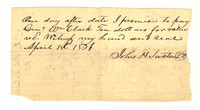 One day after date I promise to pay
Genl Wm Clark Ten dollars for value
recd. Witness my hand and seal
April 1st 1836
John H.